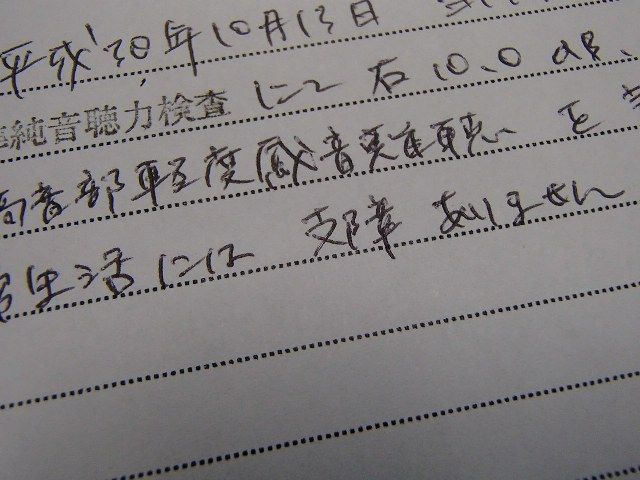 平成30年10月13日 当
純音聴力検査 にて 右 10.0 dB、
高音部軽度感音難聴 を
生活には 支障 ありません